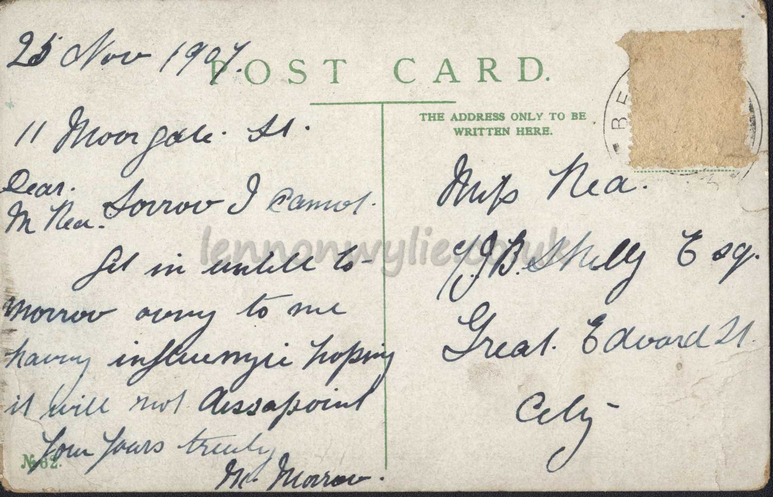 25 Nov 1907.
POST CARD.
11 Moorgate. St.
THE ADDRESS ONLY TO BE
WRITTEN HERE.
BE
Dear.
M Rea. Sorrow I cannot.
Get in untill to-
morrow owing to me
having influenzie hoping
it will not dissapoint
you yours truly
M. Morrow.
Miss Rea.
c/o J B. Shelly Esq.
Great. Edward St.
City
lennonwylie.co.uk
No 82.